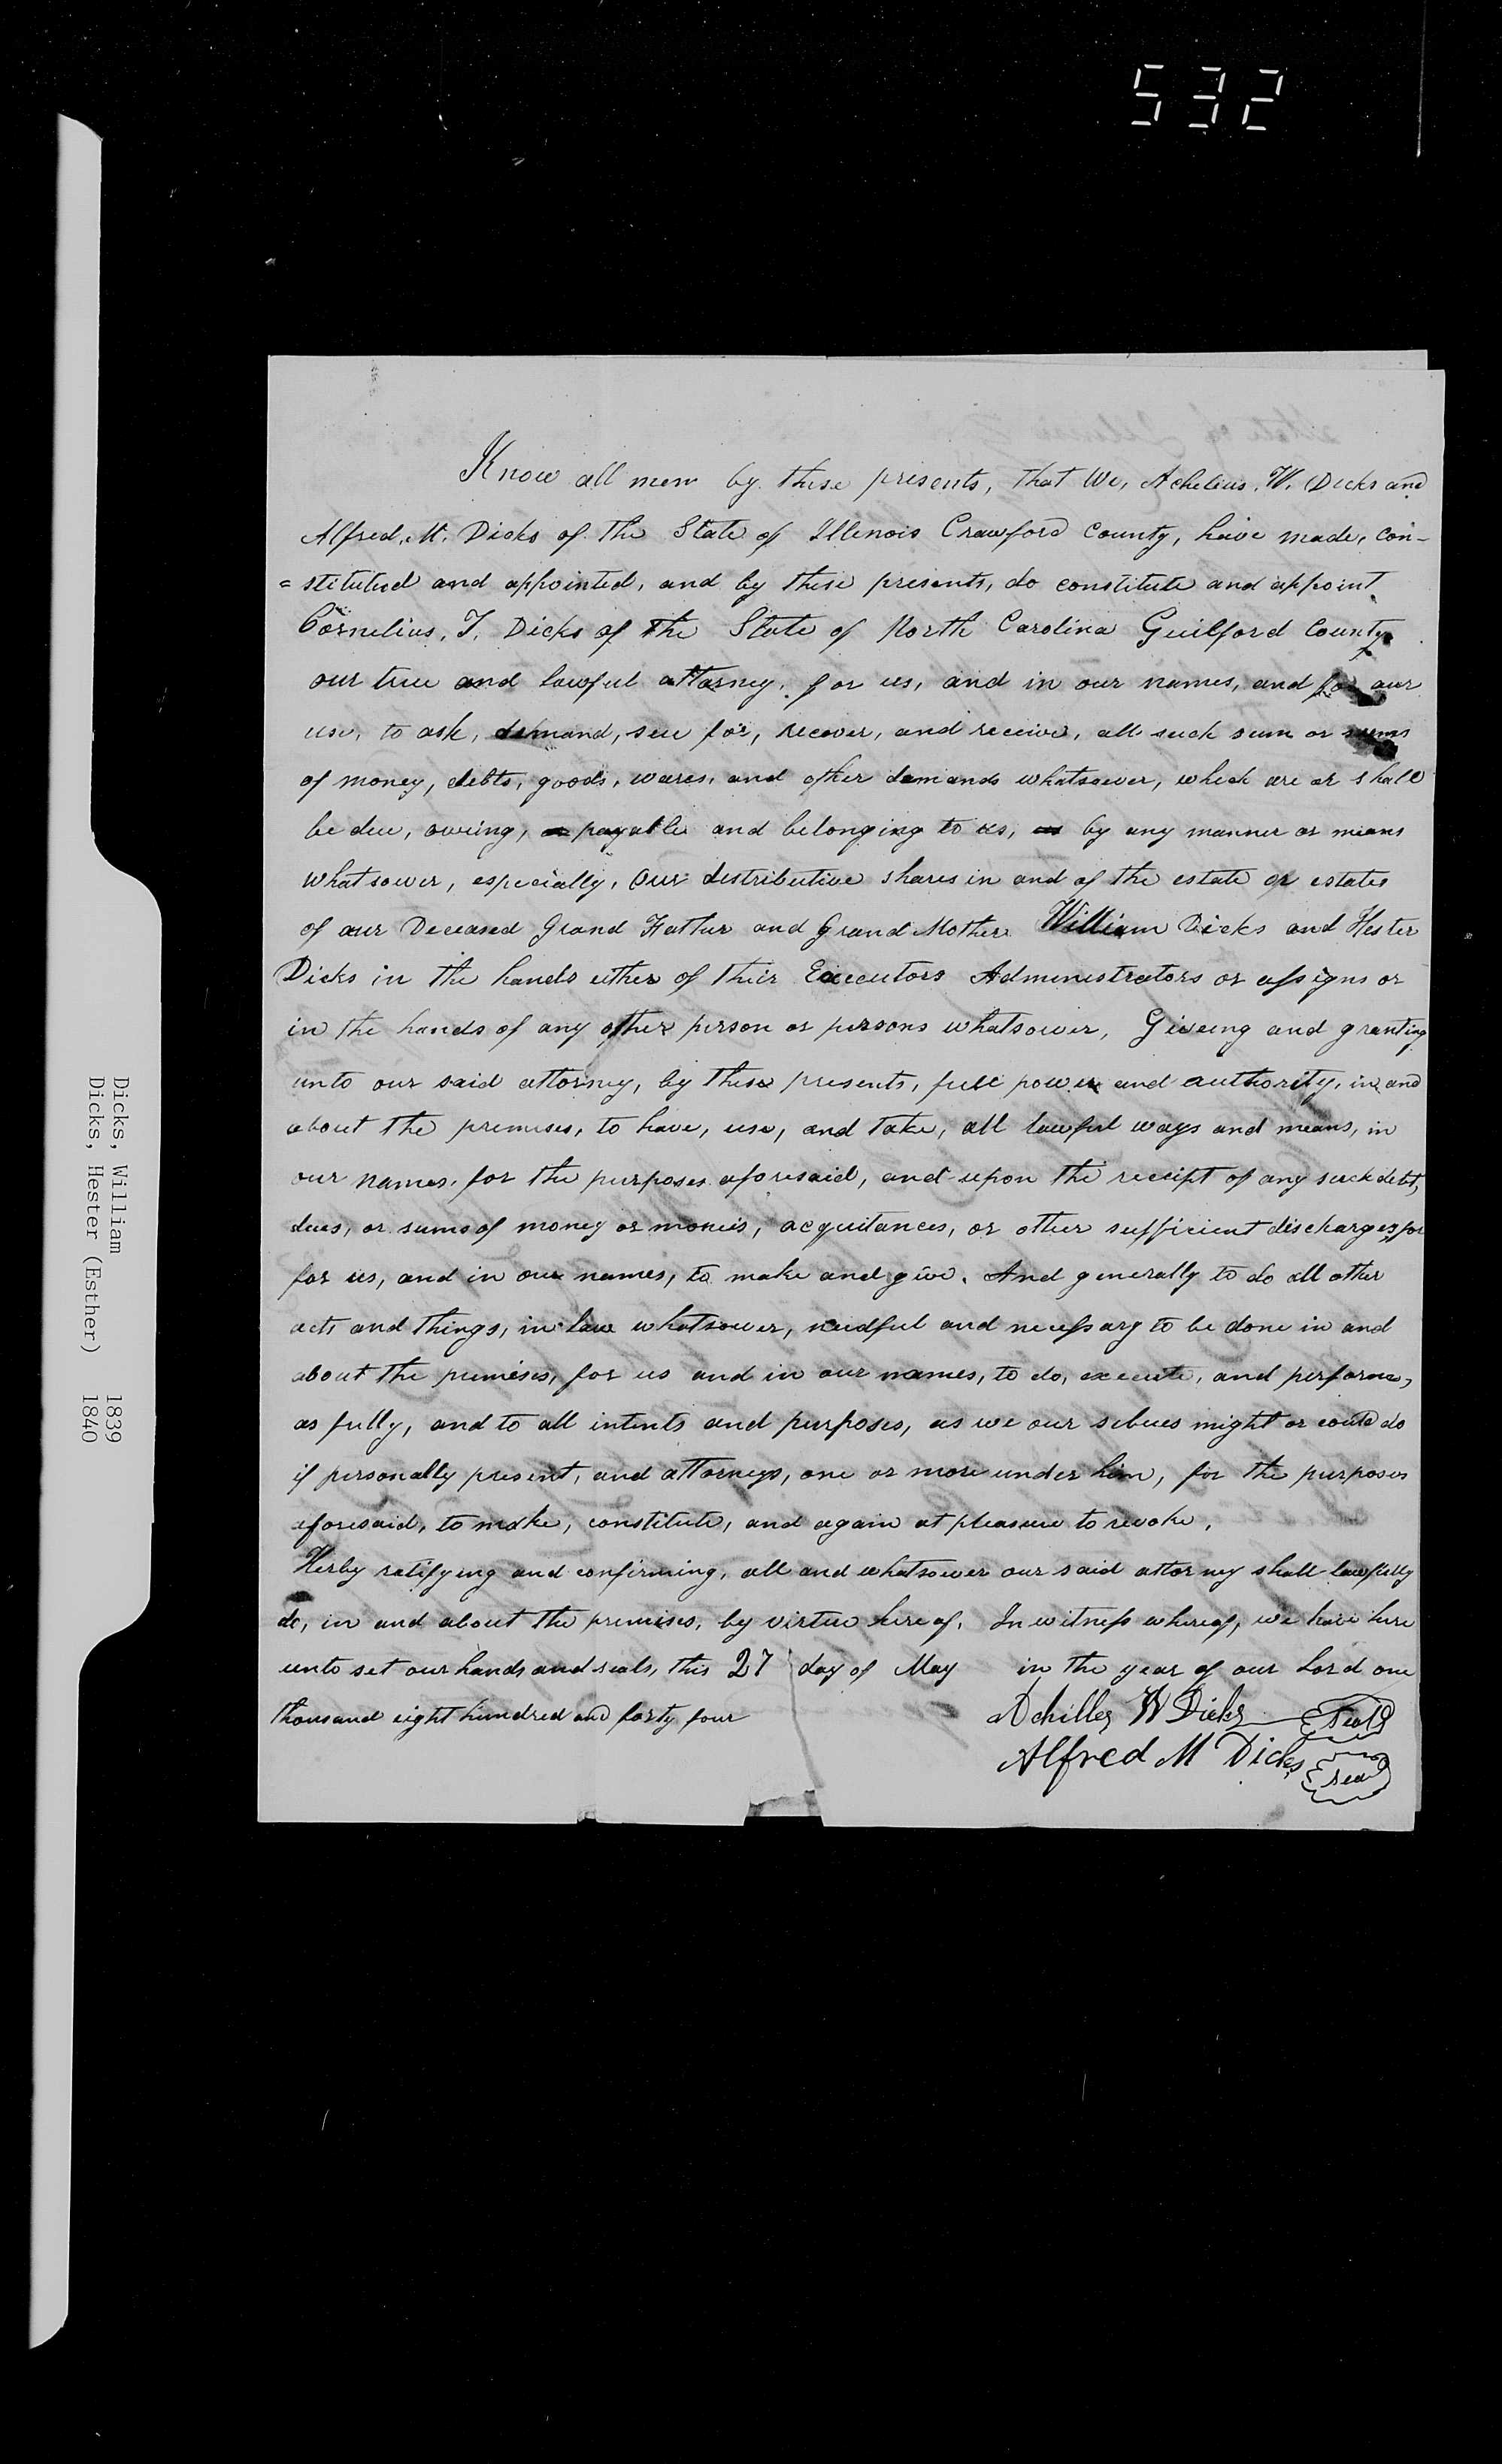 532
Know all men by these presents, that We, Achelius. W. Dicks and
Alfred. M. Dicks of the State of Illenois Crawford County, have made, con-
= stituted and appointed, and by these presents, do constitute and appoint
Cornelius. T. Dicks of the State of North Carolina Guilford County
our true and lawful attorney, for us, and in our names, and for our
use, to ask, demand, sue for, recover, and receive, all such sum or sums
of money, debts, goods, wares, and other demands whatsoever, which are or shall
be due, owing, payable and belonging to us, by any manner or means
whatsoever, especially, Our distributive shares in and of the estate or estates
of our Deceased Grand Father and Grand Mother William Dicks and Hester
Dicks in the hands either of their Executors Administrators or assigns or
in the hands of any other person or persons whatsoever, Giveing and granting
unto our said attorney, by these presents, full power and authority, in and
about the premises, to have, use, and take, all lawful ways and means, in
our names, for the purposes aforesaid, and upon the receipt of any such debt,
dues, or sums of money or monies, acquitances, or other sufficient discharges for
for us, and in our names, to make and give. And generally to do all other
acts and things, in law whatsoever, needful and necessary to be done in and
about the premises, for us and in our names, to do, execute, and perform,
as fully, and to all intents and purposes, as we our selves might or could do
if personally present, and attorneys, one or more under him, for the purposes
aforesaid, to make, constitute, and again at pleasure to revoke,
Herby ratifying and confirming, all and whatsoever our said attorney shall lawfully
do, in and about the premises, by virtue hereof. In witness whereof, we have here
unto set our hands and seals, this 27 day of May in the year of our Lord one
thousand eight hundred and forty four
Achilles W Dicks Seal
Alfred M Dicks Seal
Dicks, William 1839
Dicks, Hester (Esther) 1840